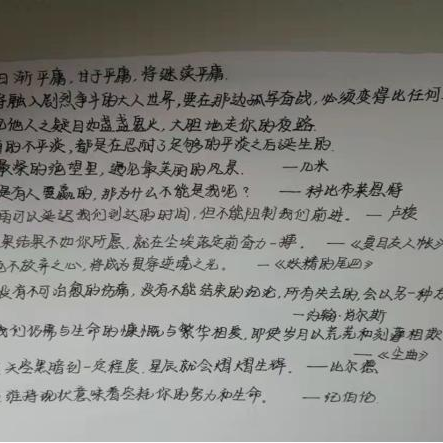 日渐平庸,甘于平庸,将继续平庸.
将融入剧烈争斗的大人世界,要在那边孤军奋战,必须变得比任何
见他人之疑目如盏盏鬼火,大胆地走你的夜路.
的不平凌,都是在忍耐了足够的平凌之后诞生的.
最深的绝望里,遇见最美丽的风景. —几米
是有人要赢的,那为什么不能是我呢? —科比布莱恩特
雨可以延迟我们到达的时间,但不能阻制我们前进。 — 卢梭
果结果不如你所愿,就在尘埃落定前奋力一搏. —《夏目友人帐》
绝不放弃之心,将成为贯穿逆境之光。 —《妖精的尾巴》
没有不可治愈的伤痛,没有不能结束的沉沦,所有失去的,会以另一种方
—约翰·肖尔斯
我们仍需与生命的慷慨与繁华相爱,即使岁月以荒芜和刻薄相欺
—《尘曲》
天空黑暗到一定程度,星辰就会熠熠生辉. —比尔德
维持现状意味着空耗你的努力和生命。 —纪伯伦